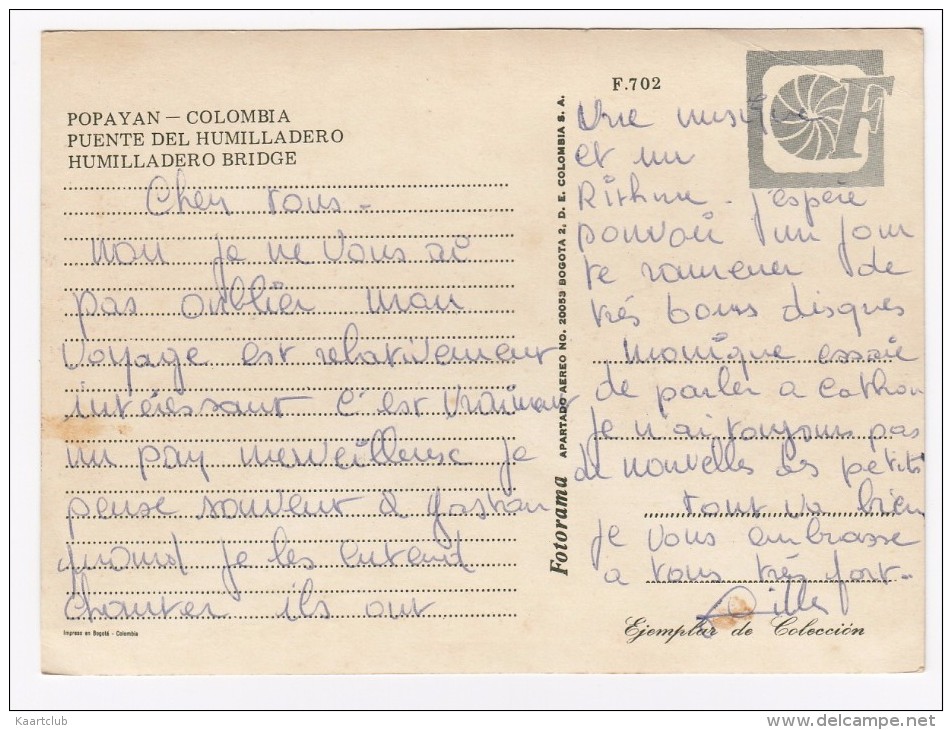 POPAYAN — COLOMBIA
PUENTE DEL HUMILLADERO
HUMILLADERO BRIDGE
Cher tous -
non je ne vous ai
pas oublier mon
voyage est relativement
intéressant c'est vraiment
un pay merveilleuse je
pense souvent à gaston
quand je les entend
chanter ils ont
Impreso en Bogotá - Colombia
Fotorama APARTADO AEREO NO. 20053 BOGOTA 2, D. E. COLOMBIA S. A.
F.702
F
Une musique
et un
Rithme - j'espère
pouvoir un jour
te ramener de
très bons disques
Monique essaie
de parler a
je n'ai toujours pas
de nouvelles des petits
tout va bien
je vous embrasse
a tous très fort -
Ejemplar de Colección
Kaartclub
www.delcampe.net